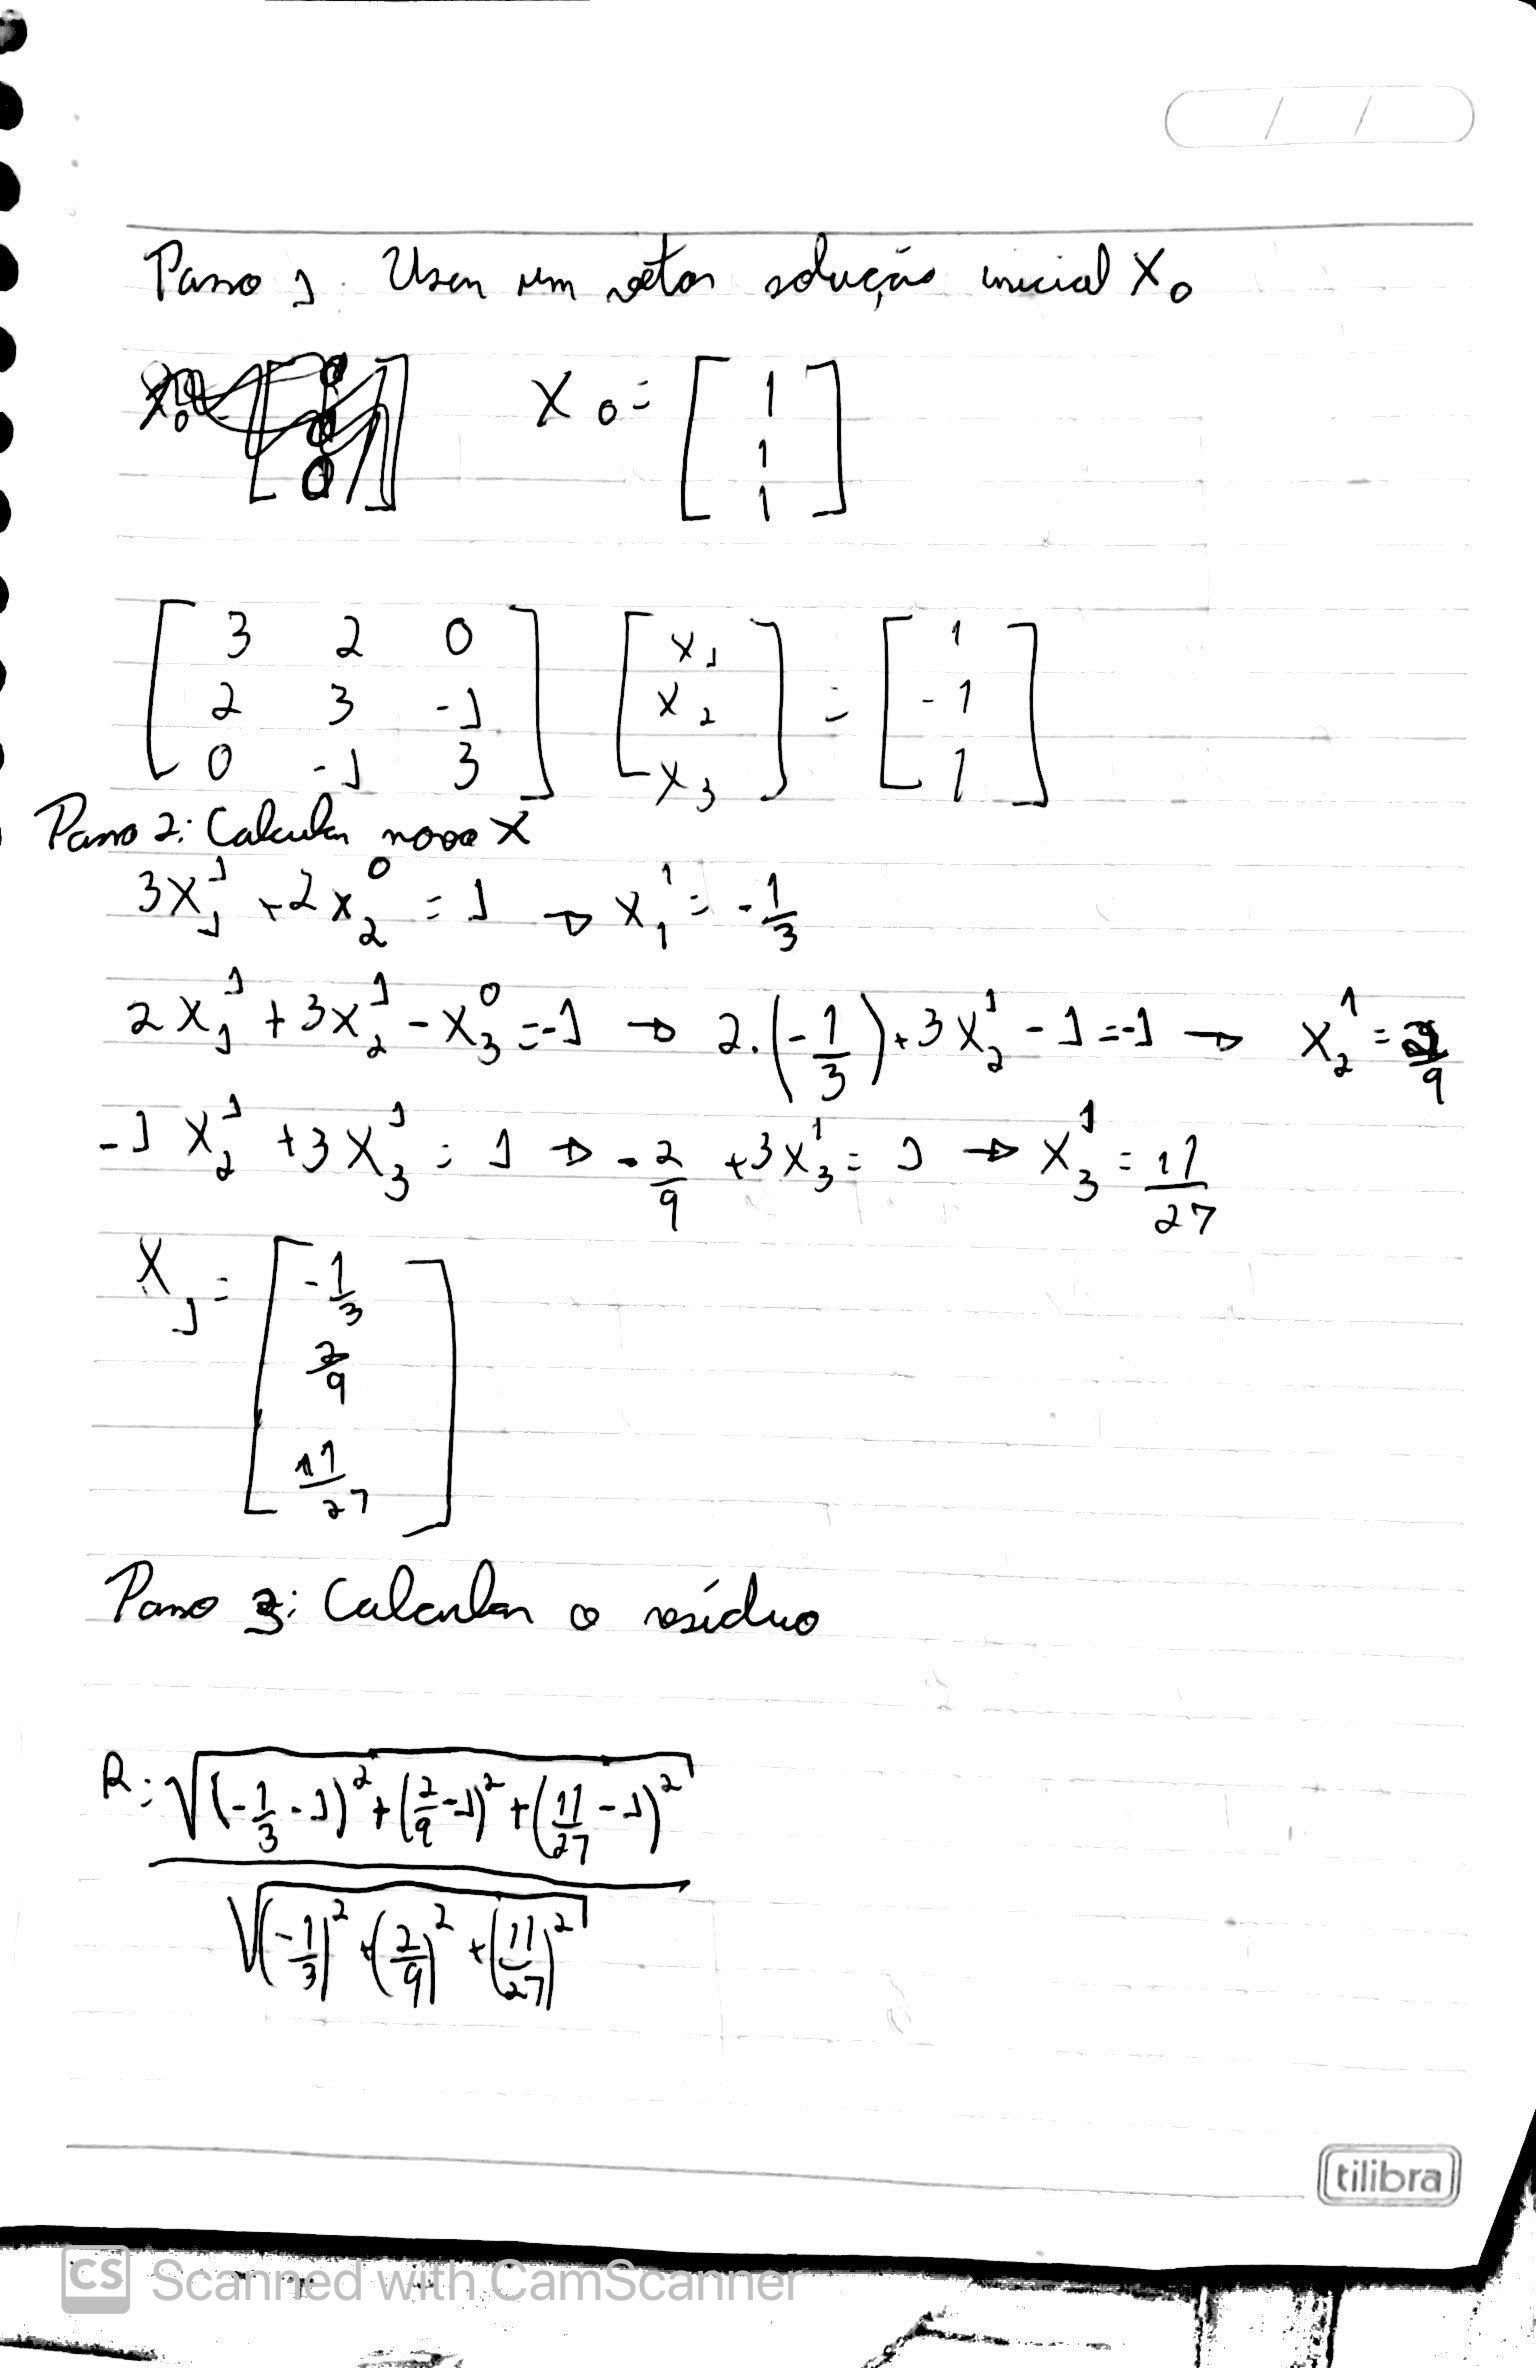 / /
Passo 1: Usar um vetor solução inicial X₀
X₀ = [1 1 1]
[3 2 0; 2 3 -1; 0 -1 3] [x₁ x₂ x₃] = [1 -1 1]
Passo 2: Calcular novo X
3x₁¹ + 2x₂⁰ = 1 → x₁¹ = -1/3
2x₁¹ + 3x₂¹ - x₃⁰ = -1 → 2.(-1/3) + 3x₂¹ - 1 = -1 → x₂¹ = 2/9
-1x₂¹ + 3x₃¹ = 1 → -2/9 + 3x₃¹ = 1 → x₃¹ = 11/27
X₁ = [-1/3 2/9 11/27]
Passo 3: Calcular o resíduo
R = √((-1/3 - 1)² + (2/9 - 1)² + (11/27 - 1)²) / √((-1/3)² + (2/9)² + (11/27)²)
tilibra
CS Scanned with CamScanner